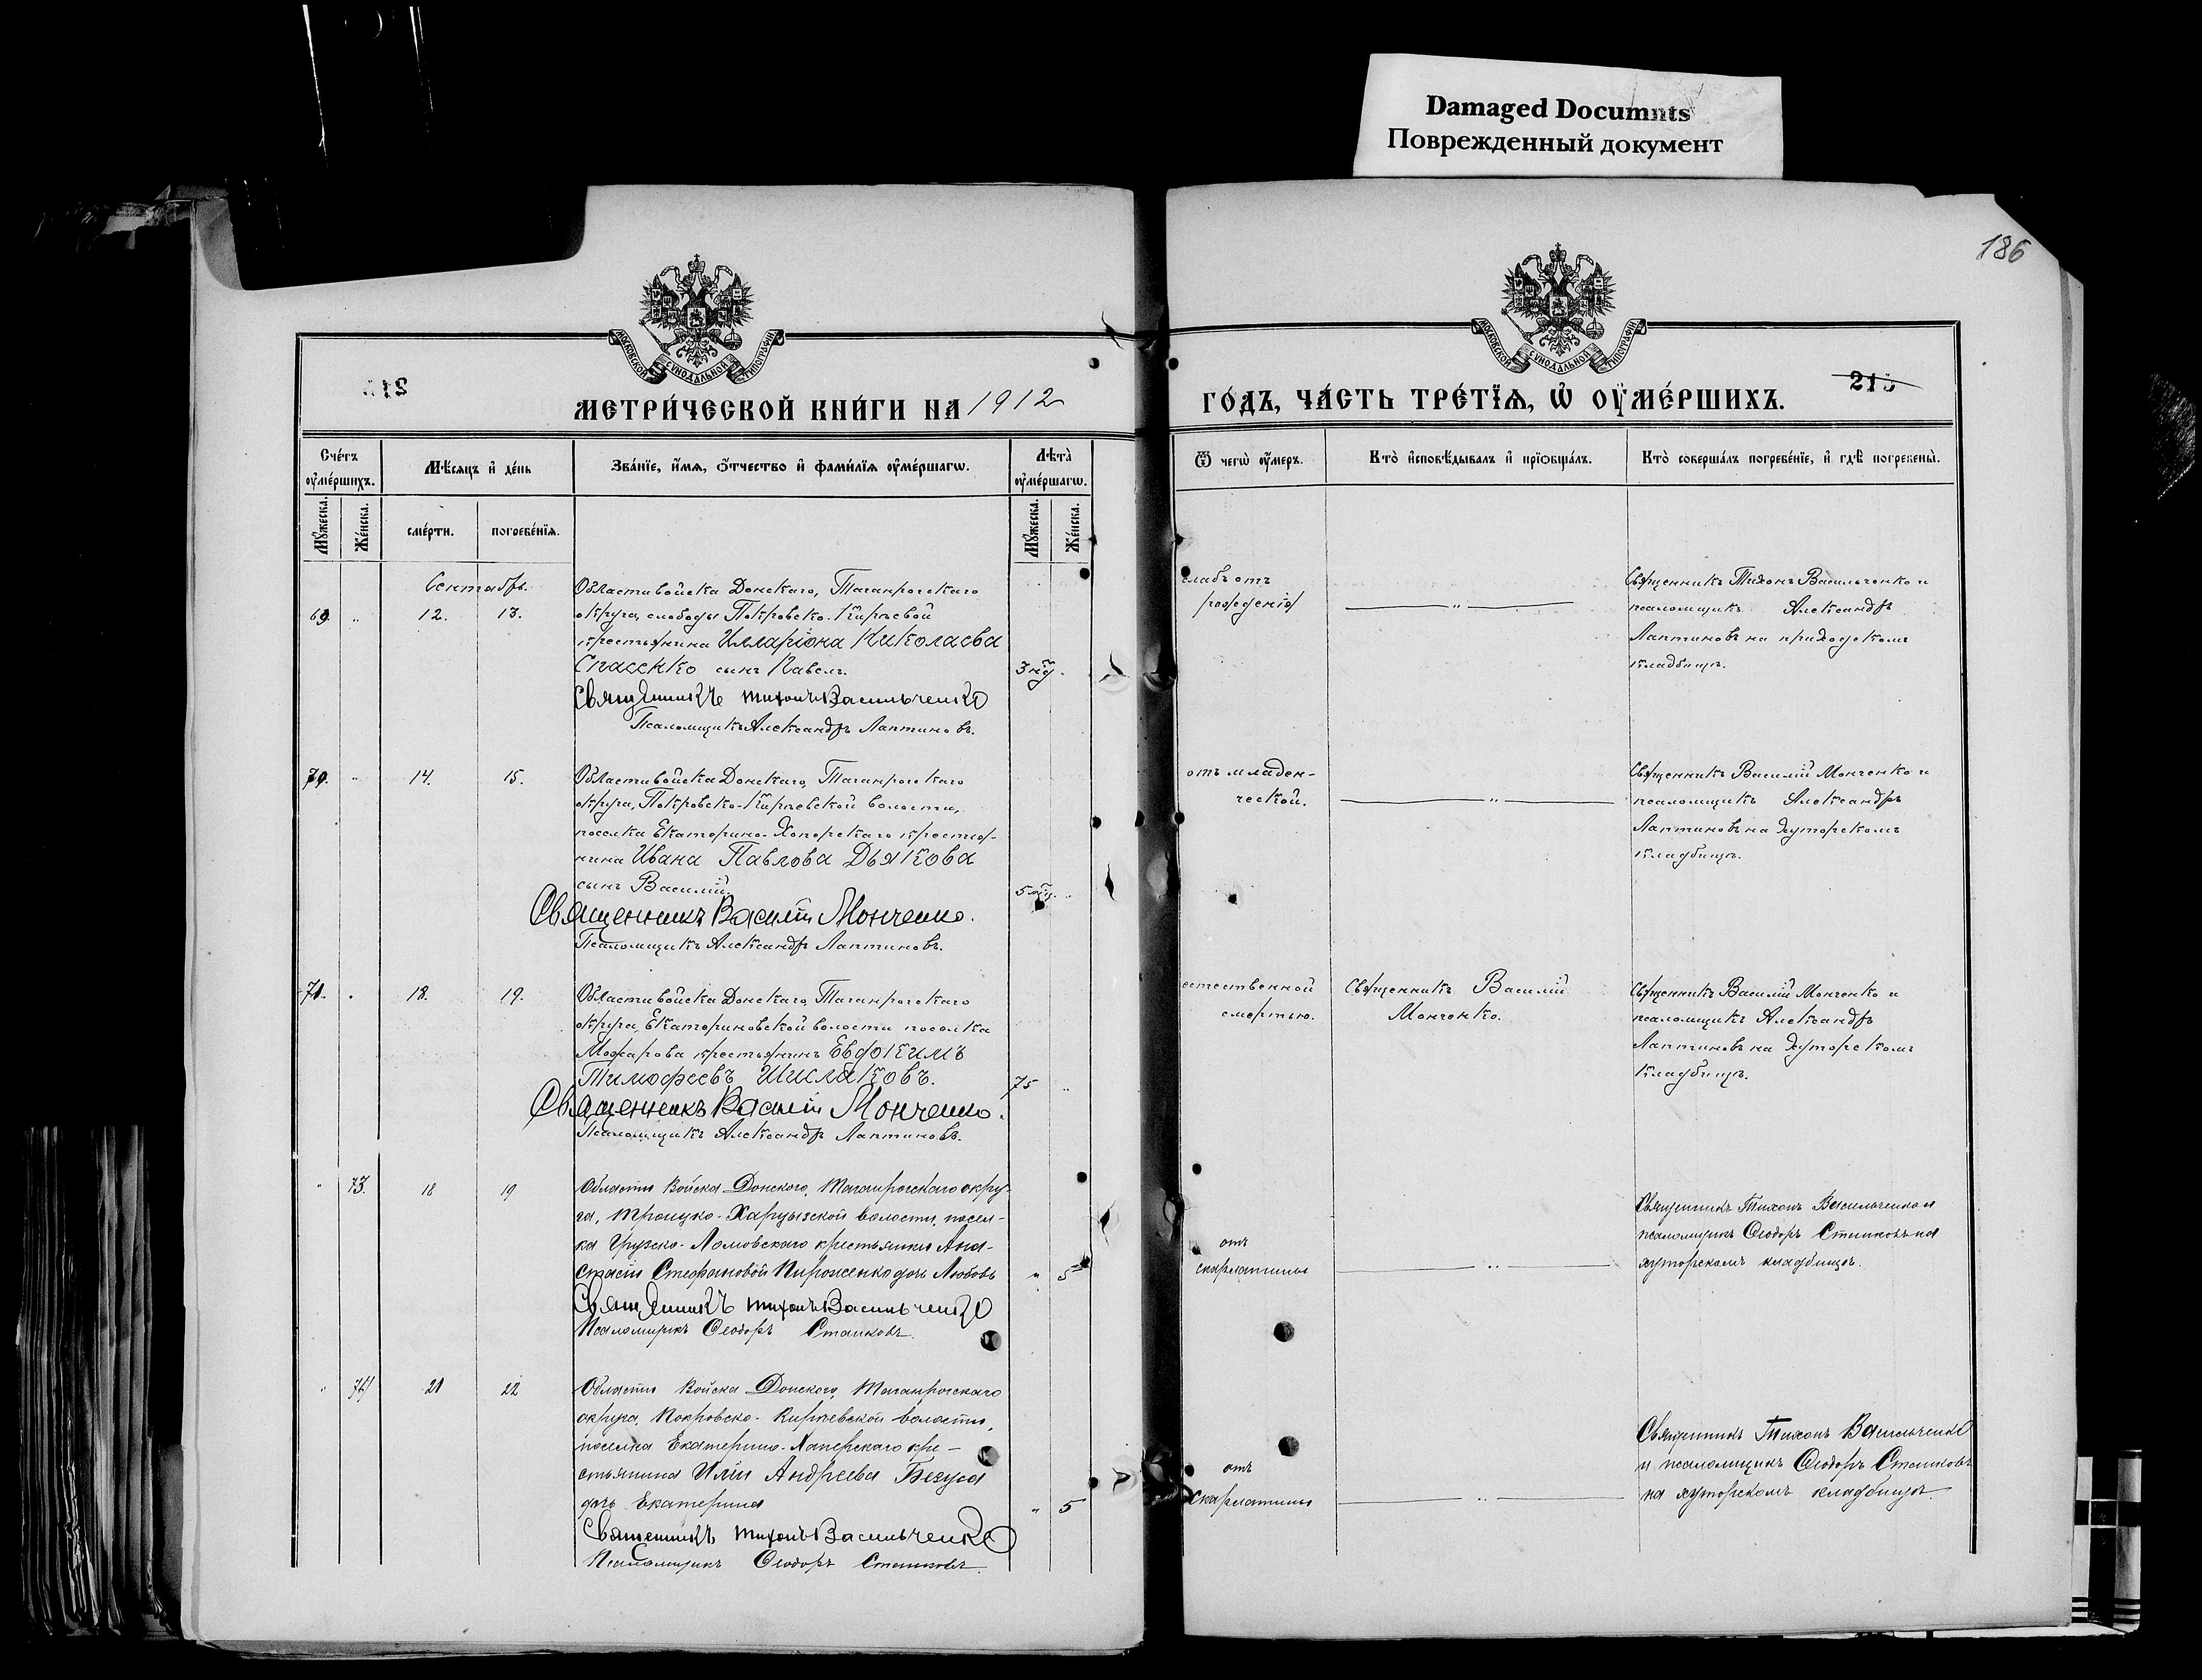 Damaged Documnts
Поврежденный документ
186
МОСКОВСКОЙ СѴНОДАЛЬНОЙ ТИПОГРАФІИ
МОСКОВСКОЙ СѴНОДАЛЬНОЙ ТИПОГРАФІИ
215
МЕТРИ́ЧЕСКОЙ КНИ́ГИ НА 1912
ГО́ДЪ, ЧА́СТЬ ТРЕ́ТЇѦ, Ѡ҆ ОУ҆МЕ́РШИХЪ.
Сче́тъ оу҆ме́ршихъ.
Мѣ́сяцъ и҆ де́нь
Зва́нїе, и҆́мя, ѻ҆́тчество и҆ фами́лїя оу҆ме́ршагѡ.
Лѣ́та̀ оу҆ме́ршагѡ.
Ѿ чегѡ̀ оу҆́меръ.
Кто̀ и҆сповѣ́дывалъ и҆ прїѡбща́лъ.
Кто̀ соверша́лъ погребе́нїе, и҆ гдѣ̀ погребены̀.
Мꙋ́жеска.
Же́нска.
сме́рти.
погребе́нїя.
Мꙋ́жеска.
Же́нска.
Сентябрь
69.
12.
13.
Области войска Донскаго, Таганрогскаго
округа, слободы Покровско-Кирѣевой
крестьянина Илларіона Николаева
Спасенко сынъ Павелъ.
3 нд.
Священникъ Тихонъ Васильченко
Псаломщикъ Александръ Лаптиновъ.
слабъ отъ
рожденія
Священникъ Тихонъ Васильченко и
псаломщикъ Александръ
Лаптиновъ на приходскомъ
кладбищѣ.
70.
14.
15.
Области войска Донскаго, Таганрогскаго
округа, Покровско-Кирѣевской волости,
поселка Екатерино-Хоперскаго крестья-
нина Ивана Павлова Дьякова
сынъ Василій.
5 мц.
Священникъ Василій Монченко.
Псаломщикъ Александръ Лаптиновъ.
отъ младен-
ческой.
Священникъ Василій Монченко и
псаломщикъ Александръ
Лаптиновъ на хуторскомъ
кладбищѣ.
71.
18.
19.
Области войска Донскаго, Таганрогскаго
округа, Екатериновской волости поселка
Можарова крестьянинъ Евдокимъ
Тимофеевъ Шисляковъ.
75
Священникъ Василій Монченко.
Псаломщикъ Александръ Лаптиновъ.
естественной
смертью.
Священникъ Василій
Монченко.
Священникъ Василій Монченко и
псаломщикъ Александръ
Лаптиновъ на хуторскомъ
кладбищѣ.
73.
18
19
Области Войска Донскаго, Таганрогскаго окру-
га, Троицко-Харцызской волости, посел-
ка Грузско-Ломовскаго крестьянки Ана-
стасіи Стефановой Пироженко дочь Любовь
5
Священникъ Тихонъ Васильченко
Псаломщикъ Ѳеодоръ Станковъ.
отъ
скарлатины
Священникъ Тихонъ Васильченко и
псаломщикъ Ѳеодоръ Станковъ на
хуторскомъ кладбищѣ.
74
21
22
Области Войска Донского, Таганрогскаго
округа, Покровско-Кирѣевской волости,
поселка Екатерино-Хаперскаго кре-
стьянина Иліи Андреева Безуса
дочь Екатерина
5
Священникъ Тихонъ Васильченко
Псаломщикъ Ѳеодоръ Станковъ.
отъ
скарлатины
Священникъ Тихонъ Васильченко
и псаломщикъ Ѳеодоръ Станковъ
на хуторскомъ кладбищѣ.